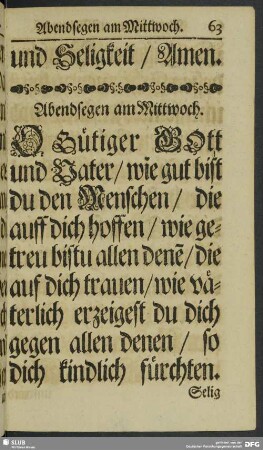 Abendsegen am Mittwoch. 63
und Seligkeit / Amen.
Abendsegen am Mittwoch.
O Gütiger GOtt
und Vater / wie gut bist
du den Menschen / die
auff dich hoffen / wie ge-
treu bistu allen denē / die
auf dich trauen / wie vä-
terlich erzeigest du dich
gegen allen denen / so
dich kindlich fürchten.
Selig
SLUB